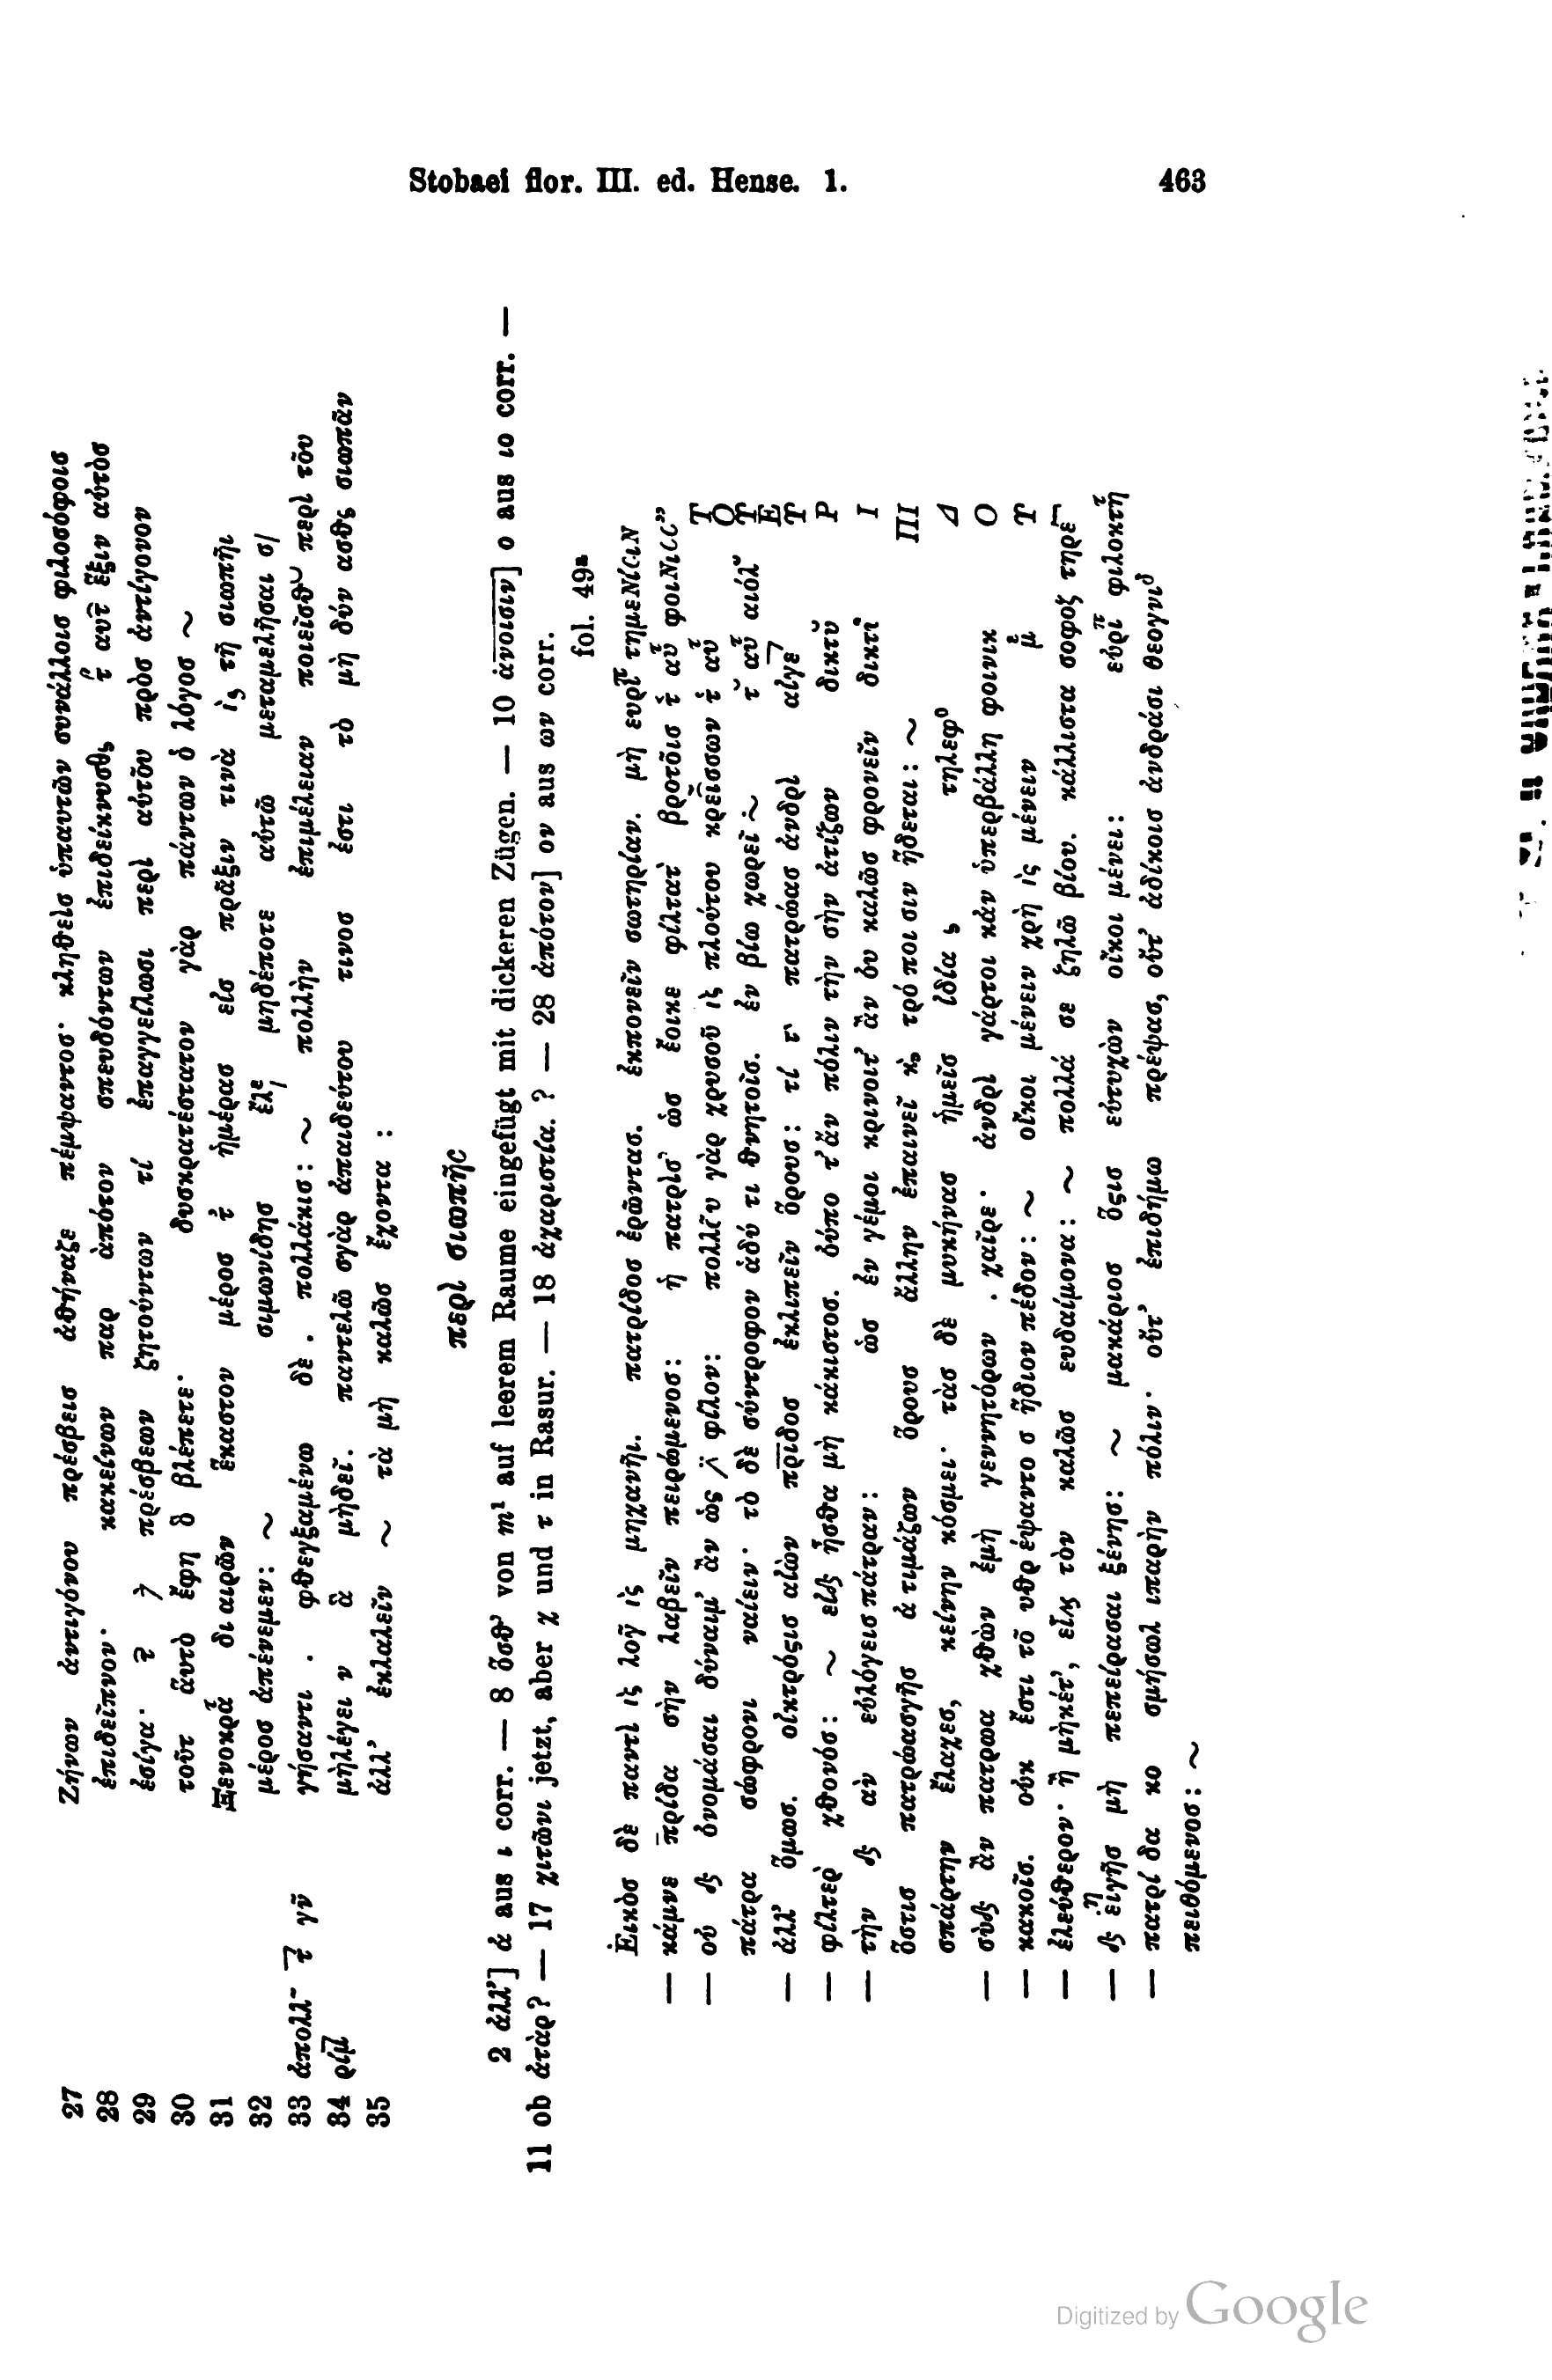 Stobaei flor. III. ed. Hense. 1. 463
27 Ζήνων ἀντιγόνου πρέσβεισ ἀθήναζε πέμψαντοσ· κληθεὶσ ὑπαυτῶν συνάλλοισ φιλοσόφοισ
28 ἐπιδεῖπνον· κακείνων παρ ἀπότον σπευδόντων ἐπιδείκνυσθς ἕξιν αὐτὸσ
29 ἐσίγα· πρέσβεων ζητούντων τί ἐπαγγείλωσι περὶ αὐτοῦ πρὸσ ἀντίγονον
30 τοῦτ ἄυτὸ ἔφη ὃ βλέπετε· δυσκρατέστατον γὰρ πάντων ὁ λόγοσ ~
31 Ξενοκρᾶ διαιρῶν ἕκαστον μέροσ τ ἡμέρασ εἰσ πρᾶξιν τινὰ ἰς τῆ σιωπῆι
32 μέροσ ἀπένεμεν: ~ σιμωνίδησ ἔλε μηδέποτε αὐτῶ μεταμελῆσαι σ/
33 ἀπολλ γῦ γήσαντι . φθεγξαμένω δὲ . πολλάκισ: ~ πολλὴν ἐπιμέλειαν ποιεῖσθ περὶ τοῦ
34 ρίμ μὴλέγει ν ἃ μὴδεῖ. παντελῶ σγὰρ ἀπαιδεύτου τινοσ ἐστι τὸ μὴ δύν ασθς σιωπᾶν
35 ἀλλ’ ἐκλαλεῖν ~ τὰ μὴ καλῶσ ἔχοντα :
περὶ σιωπῆς
2 ἀλλ’] ἀ aus ι corr. — 8 ὅσθ’ von m¹ auf leerem Raume eingefügt mit dickeren Zügen. — 10 ἀνοισιν] ο aus ιο corr. —
11 ob ἀτὰρ? — 17 χιτῶνι jetzt, aber χ und τ in Rasur. — 18 ἀχαριστία. ? — 28 ἀπότον] ον aus ων corr.
fol. 49ᵃ
Ἐικὸσ δὲ παντὶ ις λογ ις μηχανῆι. πατρίδοσ ἐρῶντασ. ἐκπονεῖν σωτηρίαν. μὴ ευρι τημεΝίΩΝ
— κάμνε πρίδα σὴν λαβεῖν πειρώμενοσ: ἡ πατρὶσ ὡσ ἔοικε φίλτατ βροτοῖσ τ αυ φοιΝιCC”
— οὐ ὀνομάσαι δύναιμ’ ἂν ὡς φίλον: πολλοῦ γὰρ χρυσοῦ ις πλούτου κρεῖσσων τ αυ Τ
πάτρα σώφρονι ναίειν· τὸ δὲ σύντροφον ἁδύ τι θνητοῖσ. ἐν βίω χωρεῖ ~ τ αυ αιόλ
— ἀλλ’ ὅμωσ. οἰκτρόςισ αἰὼν πρίδοσ ἐκλιπεῖν ὅρουσ: τί τ πατρώασ ἀνδρὶ αἰγε
— φίλτερ χθονόσ: ~ εἰ ἦσθα μὴ κάκιστοσ. ὀύπο τ’ ἂν πόλιν τὴν σὴν ἀτίζων δικτυ Ρ
— τὴν αν εὐλόγεισ πάτραν: ὡσ ἐν γέμοι κρινοιτ’ ἂν ὀυ καλῶσ φρονεῖν δικτι Ι
ὅστισ πατρώασγῆσ ἀ τιμάζων ὅρουσ ἄλλην ἐπαινεῖ κ τρό ποι σιν ἥδεται: ~ ΠΙ
σπάρτην ἔλαχεσ, κείνην κόσμει· τὰσ δὲ μυκήνασ ἡμεῖσ ἰδία ς τηλεφ Δ
— σὺ ἂν πατρωα χθὼν ἐμὴ γεννητόρων . χαῖρε· ἀνδρὶ γάρτοι κἂν ὑπερβάλλη φοινικ Ο
— κακοῖσ. οὐκ ἔστι τοῦ υθρ έψαντο σ ἥδιον πέδον: ~ οἴκοι μένειν χρὴ ις μένειν μ Υ
— ἐλεύθερον· ἢ μὴκέτ’, εἶς τὸν καλῶσ ευδαίμονα: ~ πολλά σε ζηλῶ βίου. κάλλιστα σοφοζ τηρε Γ
— εἰγῆσ μὴ πεπείρασαι ξένησ: ~ μακάριοσ ὅςισ εὐτυχὼν οἴκοι μένει: εὐρι φιλοκτῆ
— πατρί δα κο σμήσωλ ιπαρὴν πόλιν· οὔτ’ ἐπιδήμω πρέψασ, οὔτ’ ἀδίκοισ ἀνδράσι θεογνι
πειθόμενοσ: ~
Digitized by Google